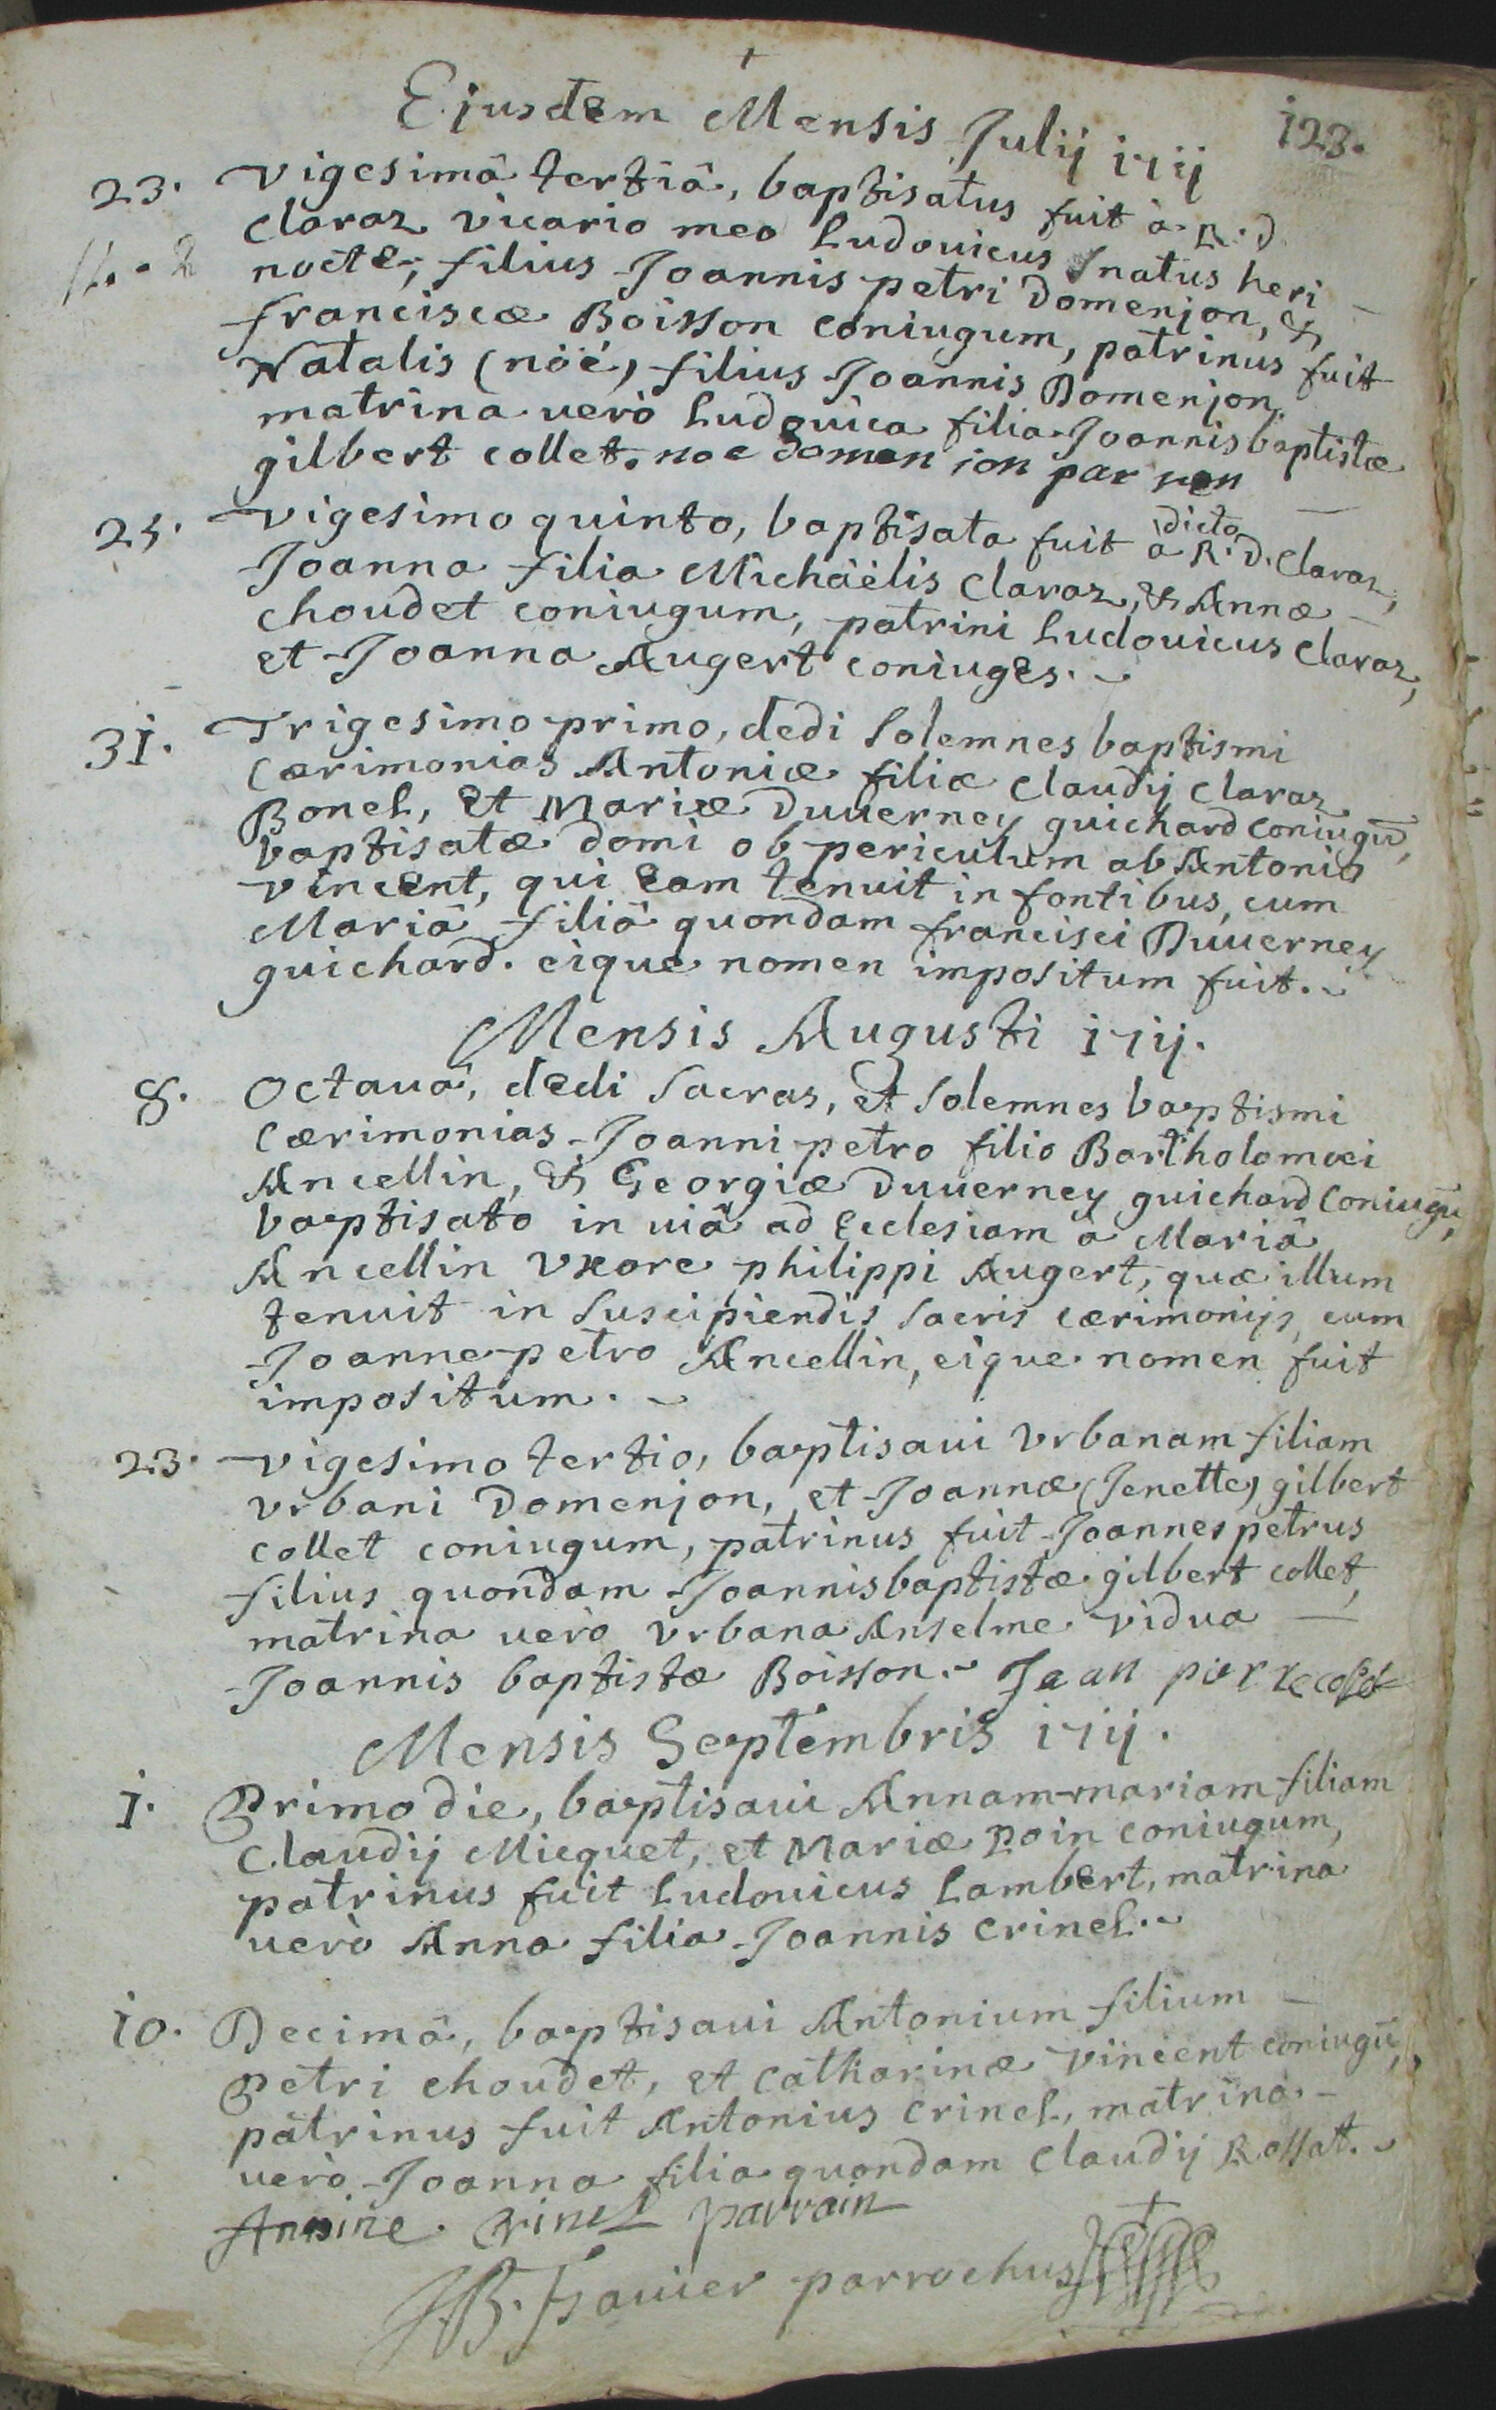 +
Ejusdem Mensis Julij 1711
123.
23. Vigesimâ tertiâ, baptisatus fuit à R. d.
Claraz vicario meo Ludovicus natus heri
nocte, filius Joannis petri Domenjon, &
franciscæ Boisson coniugum, patrinus fuit
Natalis (nöé) filius Joannis Domenjon,
matrina uerò Ludouica filia Joannis baptistæ
gilbert collet. noe domen ion par
25. Vigesimo quinto, baptisata fuit à dicto R. D. Claraz,
Joanna filia Michäélis Claraz, & Annæ
choudet coniugum, patrini Ludouicus Claraz,
et Joanna Augert coniuges.
31. Trigesimo primo, dedi Solemnes baptismi
Cærimonias Antoniæ filiæ Claudij Claraz
Bonel, et Mariæ Duuerney guichard coniugū,
baptisatæ domi ob periculum ab Antonio
vincent, qui eam tenuit in fontibus, cum
Mariâ filiâ quondam francisci Duuerney
guichard. eique nomen impositum fuit.
Mensis Augusti 1711.
8. Octauâ, dedi Sacras, et Solemnes baptismi
Cærimonias Joanni petro filio Bartholomoei
Ancellin, & Georgiæ Duuerney guichard Coniugū,
baptisato in uiâ ad Ecclesiam à Mariâ
Ancellin Vxore philippi Augert, quæ illum
tenuit in Suscipiendis Sacris cærimonijs, cum
Joanne petro Ancellin, eique nomen fuit
impositum.
23. Vigesimo tertio, baptisaui Vrbanam filiam
Vrbani Domenjon, et Joannæ (Jenette) gilbert
collet coniugum, patrinus fuit Joannes petrus
filius quondam Joannis baptistæ gilbert collet,
matrina uerò Vrbana Anselme vidua
Joannis baptistæ Boisson. Jean pierre
Mensis Septembris 1711.
1. Primo die, baptisaui Annam-mariam filiam
Claudij Micquet, et Mariæ Poin coniugum,
patrinus fuit Ludouicus Lambert, matrina
uerò Anna filia Joannis Crinel.
10. Decimâ, baptisaui Antonium filium
Petri choudet, et Catharinæ vincent coniugū,
patrinus fuit Antonius Crinel, matrina
uerò Joanna filia quondam Claudij Rossat.
Antoine Crinel parrain
parrochus